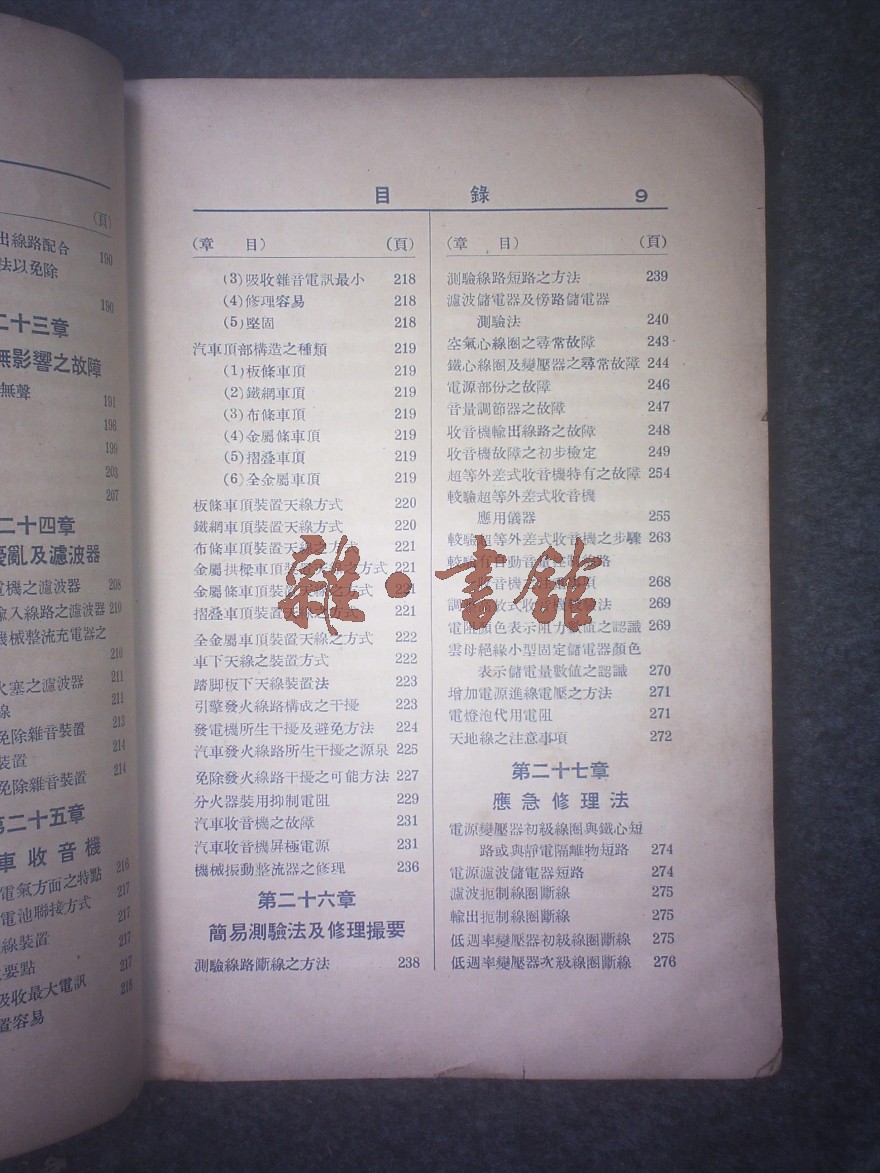 (頁)
出線路配合
190
法以免除
190
二十三章
無影響之故障
無聲
191
196
199
203
207
二十四章
擾亂及濾波器
電機之濾波器 208
輸入線路之濾波器 210
機械整流充電器之
210
火塞之濾波器 211
線 211
免除雜音裝置 213
裝置 214
免除雜音裝置 214
第二十五章
車收音機
電氣方面之特點 216
電池聯接方式 217
線裝置 217
要點 217
吸收最大電訊 217
置容易 218
目 錄 9
(章 目) (頁)
(3)吸收雜音電訊最小 218
(4)修理容易 218
(5)堅固 218
汽車頂部構造之種類 219
(1)板條車頂 219
(2)鐵網車頂 219
(3)布條車頂 219
(4)金屬條車頂 219
(5)摺叠車頂 219
(6)全金屬車頂 219
板條車頂裝置天線方式 220
鐵網車頂裝置天線方式 220
布條車頂裝置天線之方式 221
金屬拱樑車頂裝置天線之方式 221
金屬條車頂裝置天線之方式 221
摺叠車頂裝置天線之方式 221
全金屬車頂裝置天線之方式 222
車下天線之裝置方式 222
踏脚板下天線裝置法 223
引擎發火線路構成之干擾 223
發電機所生干擾及避免方法 224
汽車發火線路所生干擾之源泉 225
免除發火線路干擾之可能方法 227
分火器裝用抑制電阻 229
汽車收音機之故障 231
汽車收音機屏極電源 231
機械振動整流器之修理 236
第二十六章
簡易測驗法及修理撮要
測驗線路斷線之方法 238
(章 目) (頁)
測驗線路短路之方法 239
濾波儲電器及傍路儲電器
測驗法 240
空氣心線圈之尋常故障 243
鐵心線圈及變壓器之尋常故障 244
電源部份之故障 246
音量調節器之故障 247
收音機輸出線路之故障 248
收音機故障之初步檢定 249
超等外差式收音機特有之故障 254
較驗超等外差式收音機
應用儀器 255
較驗超等外差式收音機之步驟 263
較驗有自動音量控制線路
收音機 事項 268
調 放式收音機 法 269
電阻顏色表示阻力數值之認識 269
雲母絕緣小型固定儲電器顏色
表示儲電量數值之認識 270
增加電源進線電壓之方法 271
電燈泡代用電阻 271
天地線之注意事項 272
第二十七章
應急修理法
電源變壓器初級線圈與鐵心短
路或與靜電隔離物短路 274
電源濾波儲電器短路 274
濾波扼制線圈斷線 275
輸出扼制線圈斷線 275
低週率變壓器初級線圈斷線 275
低週率變壓器次級線圈斷線 276
雜·書館